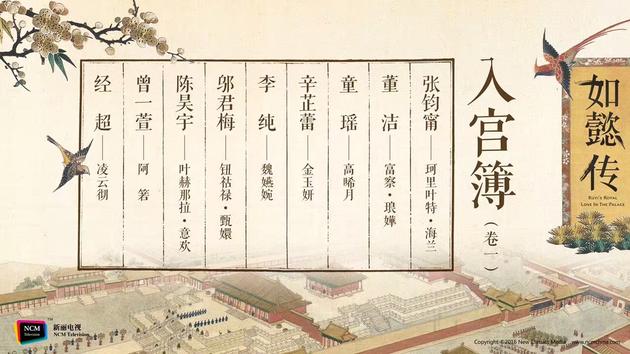 如懿传
RUYI'S ROYAL
LOVE IN THE PALACE
入宫簿（卷一）
张钧甯 珂里叶特·海兰
董洁 富察·琅嬅
童瑶 高晞月
辛芷蕾 金玉妍
李纯 魏嬿婉
邬君梅 钮祜禄·甄嬛
陈昊宇 叶赫那拉·意欢
曾一萱 阿箬
经超 凌云彻
NCM
Television
TM
新丽电视
NCM Television
Copyright ©2016 New Classics Media www.ncmchina.com